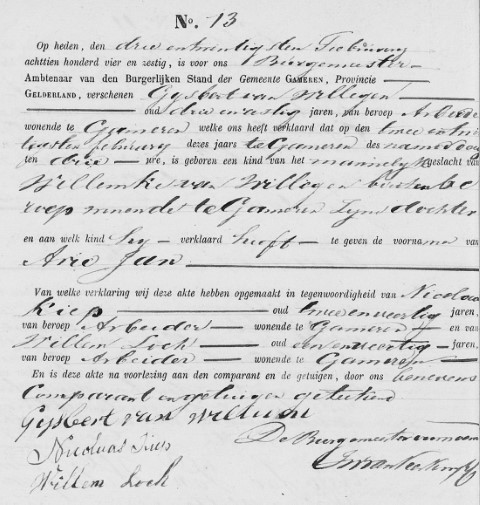 No. 13
Op heden, den drie en twintigsten Februarij
achttien honderd vier en zestig, is voor ons Burgemeester
Ambtenaar van den Burgerlijken Stand der Gemeente GAMEREN, Provincie
GELDERLAND, verschenen Gijsbert van Willigen
oud drie en zestig jaren, van beroep Arbeider
wonende te Gameren welke ons heeft verklaard dat op den twee en twin
tigsten februarij dezes jaars te Gameren des namiddags
ten drie ure, is geboren een kind van het mannelijk geslacht van
Willemke van Willigen buiten be
roep wonende te Gameren zijne dochter
en aan welk kind hij verklaard heeft te geven de voornamen van
Arie Jan
Van welke verklaring wij deze akte hebben opgemaakt in tegenwoordigheid van Nicolaas
Kiep oud twee en veertig jaren,
van beroep Arbeider wonende te Gameren en van
Willem Loch oud een en veertig jaren,
van beroep Arbeider wonende te Gameren
En is deze akte na voorlezing aan den comparant en de getuigen, door ons benevens
Comparant en getuigen geteekend
Gijsbert van Willigen
Nicolaas Kiep
De Burgemeester voornoemd
Willem Loch